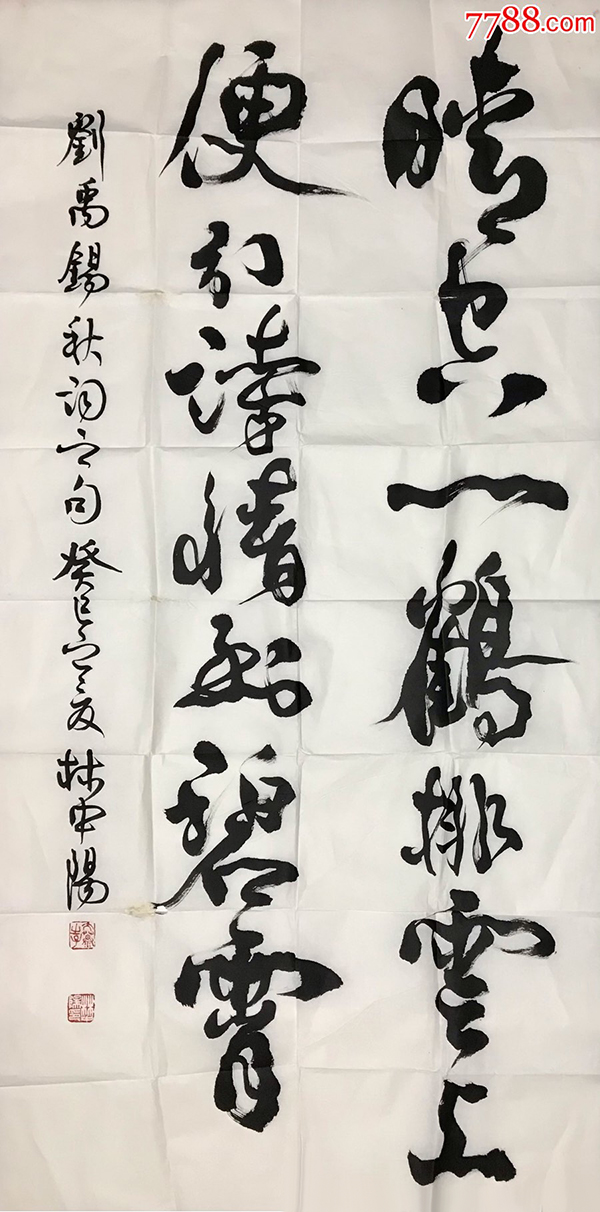 7788.com
晴空一鶴排雲上
便引詩情到碧霄
劉禹錫秋詞之句癸巳之夏林中陽